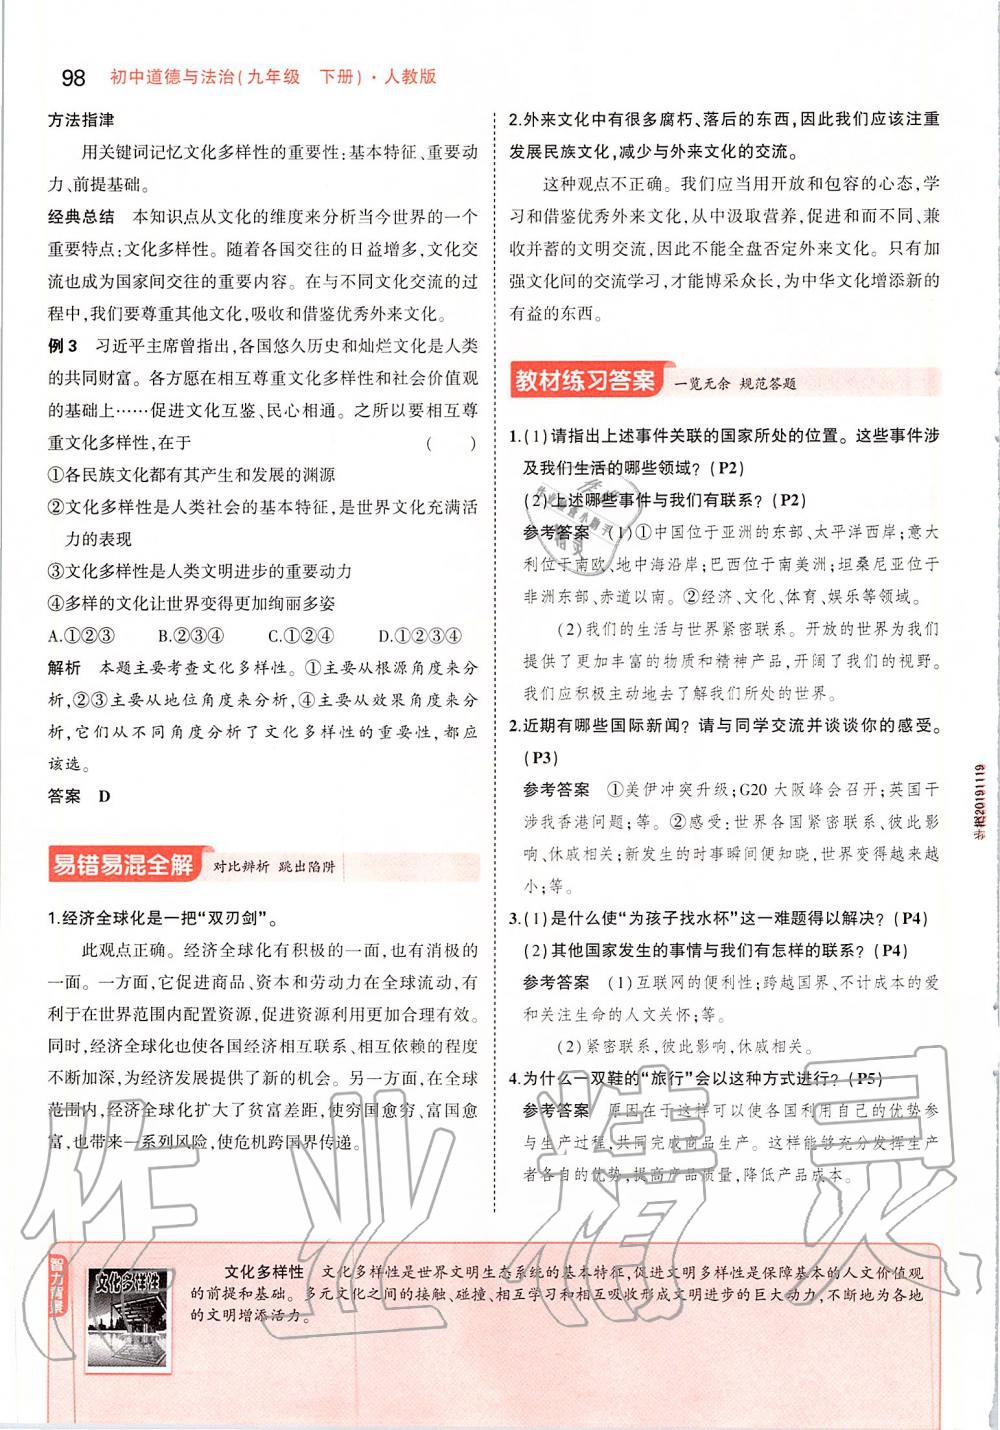 98 初中道德与法治(九年级 下册)·人教版
方法指津
用关键词记忆文化多样性的重要性:基本特征、重要动
力、前提基础。
经典总结 本知识点从文化的维度来分析当今世界的一个
重要特点:文化多样性。随着各国交往的日益增多,文化交
流也成为国家间交往的重要内容。在与不同文化交流的过
程中,我们要尊重其他文化,吸收和借鉴优秀外来文化。
例3 习近平主席曾指出,各国悠久历史和灿烂文化是人类
的共同财富。各方愿在相互尊重文化多样性和社会价值观
的基础上……促进文化互鉴、民心相通。之所以要相互尊
重文化多样性,在于 ( )
①各民族文化都有其产生和发展的渊源
②文化多样性是人类社会的基本特征,是世界文化充满活
力的表现
③文化多样性是人类文明进步的重要动力
④多样的文化让世界变得更加绚丽多姿
A.①②③ B.①②④ C.①③④ D.①②③④
解析 本题主要考查文化多样性。①主要从根源角度来分
析,②③主要从地位角度来分析,④主要从效果角度来分
析,它们从不同角度分析了文化多样性的重要性,都应
该选。
答案 D
易错易混全解 对比辨析 跳出陷阱
1.经济全球化是一把“双刃剑”。
此观点正确。经济全球化有积极的一面,也有消极的
一面。一方面,它促进商品、资本和劳动力在全球流动,有
利于在世界范围内配置资源,促进资源利用更加合理有效。
同时,经济全球化也使各国经济相互联系、相互依赖的程度
不断加深,为经济发展提供了新的机会。另一方面,在全球
范围内,经济全球化扩大了贫富差距,使穷国愈穷,富国愈
富,也带来一系列风险,使危机跨国界传递。
2.外来文化中有很多腐朽、落后的东西,因此我们应该注重
发展民族文化,减少与外来文化的交流。
这种观点不正确。我们应当用开放和包容的心态,学
习和借鉴优秀外来文化,从中汲取营养,促进和而不同、兼
收并蓄的文明交流,因此不能全盘否定外来文化。只有加
强文化间的交流学习,才能博采众长,为中华文化增添新的
有益的东西。
教材练习答案 一览无余 规范答题
1.(1)请指出上述事件关联的国家所处的位置。这些事件涉
及我们生活的哪些领域?(P2)
(2)上述哪些事件与我们有联系?(P2)
参考答案 (1)①中国位于亚洲的东部、太平洋西岸;意大
利位于南欧、地中海沿岸;巴西位于南美洲;坦桑尼亚位于
非洲东部、赤道以南。②经济、文化、体育、娱乐等领域。
(2)我们的生活与世界紧密联系。开放的世界为我们
提供了更加丰富的物质和精神产品,开阔了我们的视野。
我们应积极主动地去了解我们所处的世界。
2.近期有哪些国际新闻?请与同学交流并谈谈你的感受。
(P3)
参考答案 ①美伊冲突升级;G20大阪峰会召开;英国干
涉我香港问题;等。②感受:世界各国紧密联系,彼此影
响、休戚相关;新发生的时事瞬间便知晓,世界变得越来越
小;等。
3.(1)是什么使“为孩子找水杯”这一难题得以解决?(P4)
(2)其他国家发生的事情与我们有怎样的联系?(P4)
参考答案 (1)互联网的便利性;跨越国界、不计成本的爱
和关注生命的人文关怀;等。
(2)紧密联系,彼此影响,休戚相关。
4.为什么一双鞋的“旅行”会以这种方式进行?(P5)
参考答案 原因在于这样可以使各国利用自己的优势参
与生产过程,共同完成商品生产。这样能够充分发挥生产
者各自的优势,提高产品质量,降低产品成本。
20191119
作业精灵
智力背景
文化多样性
文化多样性 文化多样性是世界文明生态系统的基本特征,促进文明多样性是保障基本的人文价值观
的前提和基础。多元文化之间的接触、碰撞、相互学习和相互吸收形成文明进步的巨大动力,不断地为各地
的文明增添活力。